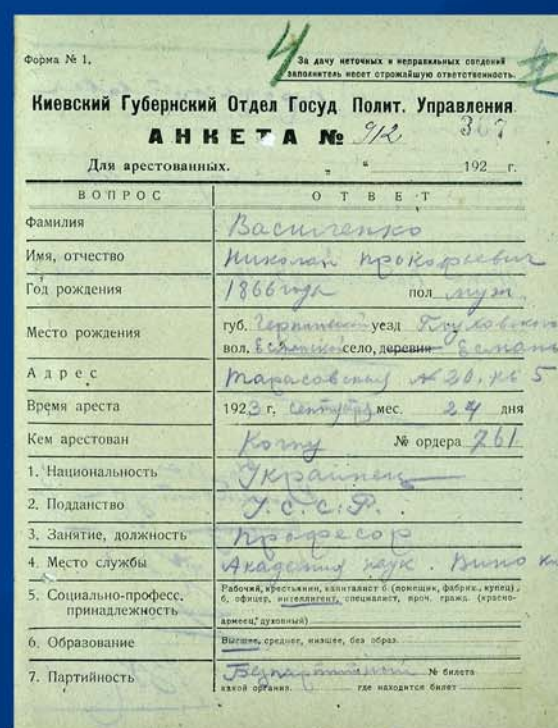 4
Форма № 1.
За дачу неточных и неправильных сведений
заполнитель несет строжайшую ответственность.
Киевский Губернский Отдел Госуд Полит. Управления
АНКЕТА № 912 367
Для арестованных. „ “ 192 г.
ВОПРОС ОТВЕТ
Фамилия Василенко
Имя, отчество Николай Прокофьевич
Год рождения 1866 года пол муж.
Место рождения губ. уезд Глуховского
вол. село, деревня Есмань
Адрес Тарасовская № 20, кв 5
Время ареста 1923 г, сентября мес. 24 дня
Кем арестован № ордера 761
1. Национальность Украинец
2. Подданство У.С.С.Р.
3. Занятие, должность Професор
4. Место службы Академия наук.
5. Социально-професс. принадлежность Рабочий, крестьянин, капиталист б. (помещик, фабрик., купец),
б. офицер, интеллигент, специалист, проч. гражд. (красно-
армеец, духовный)
6. Образование Высшее, среднее, низшее, без образ.
7. Партийность Безпартийный № билета
какой органив. где находится билет